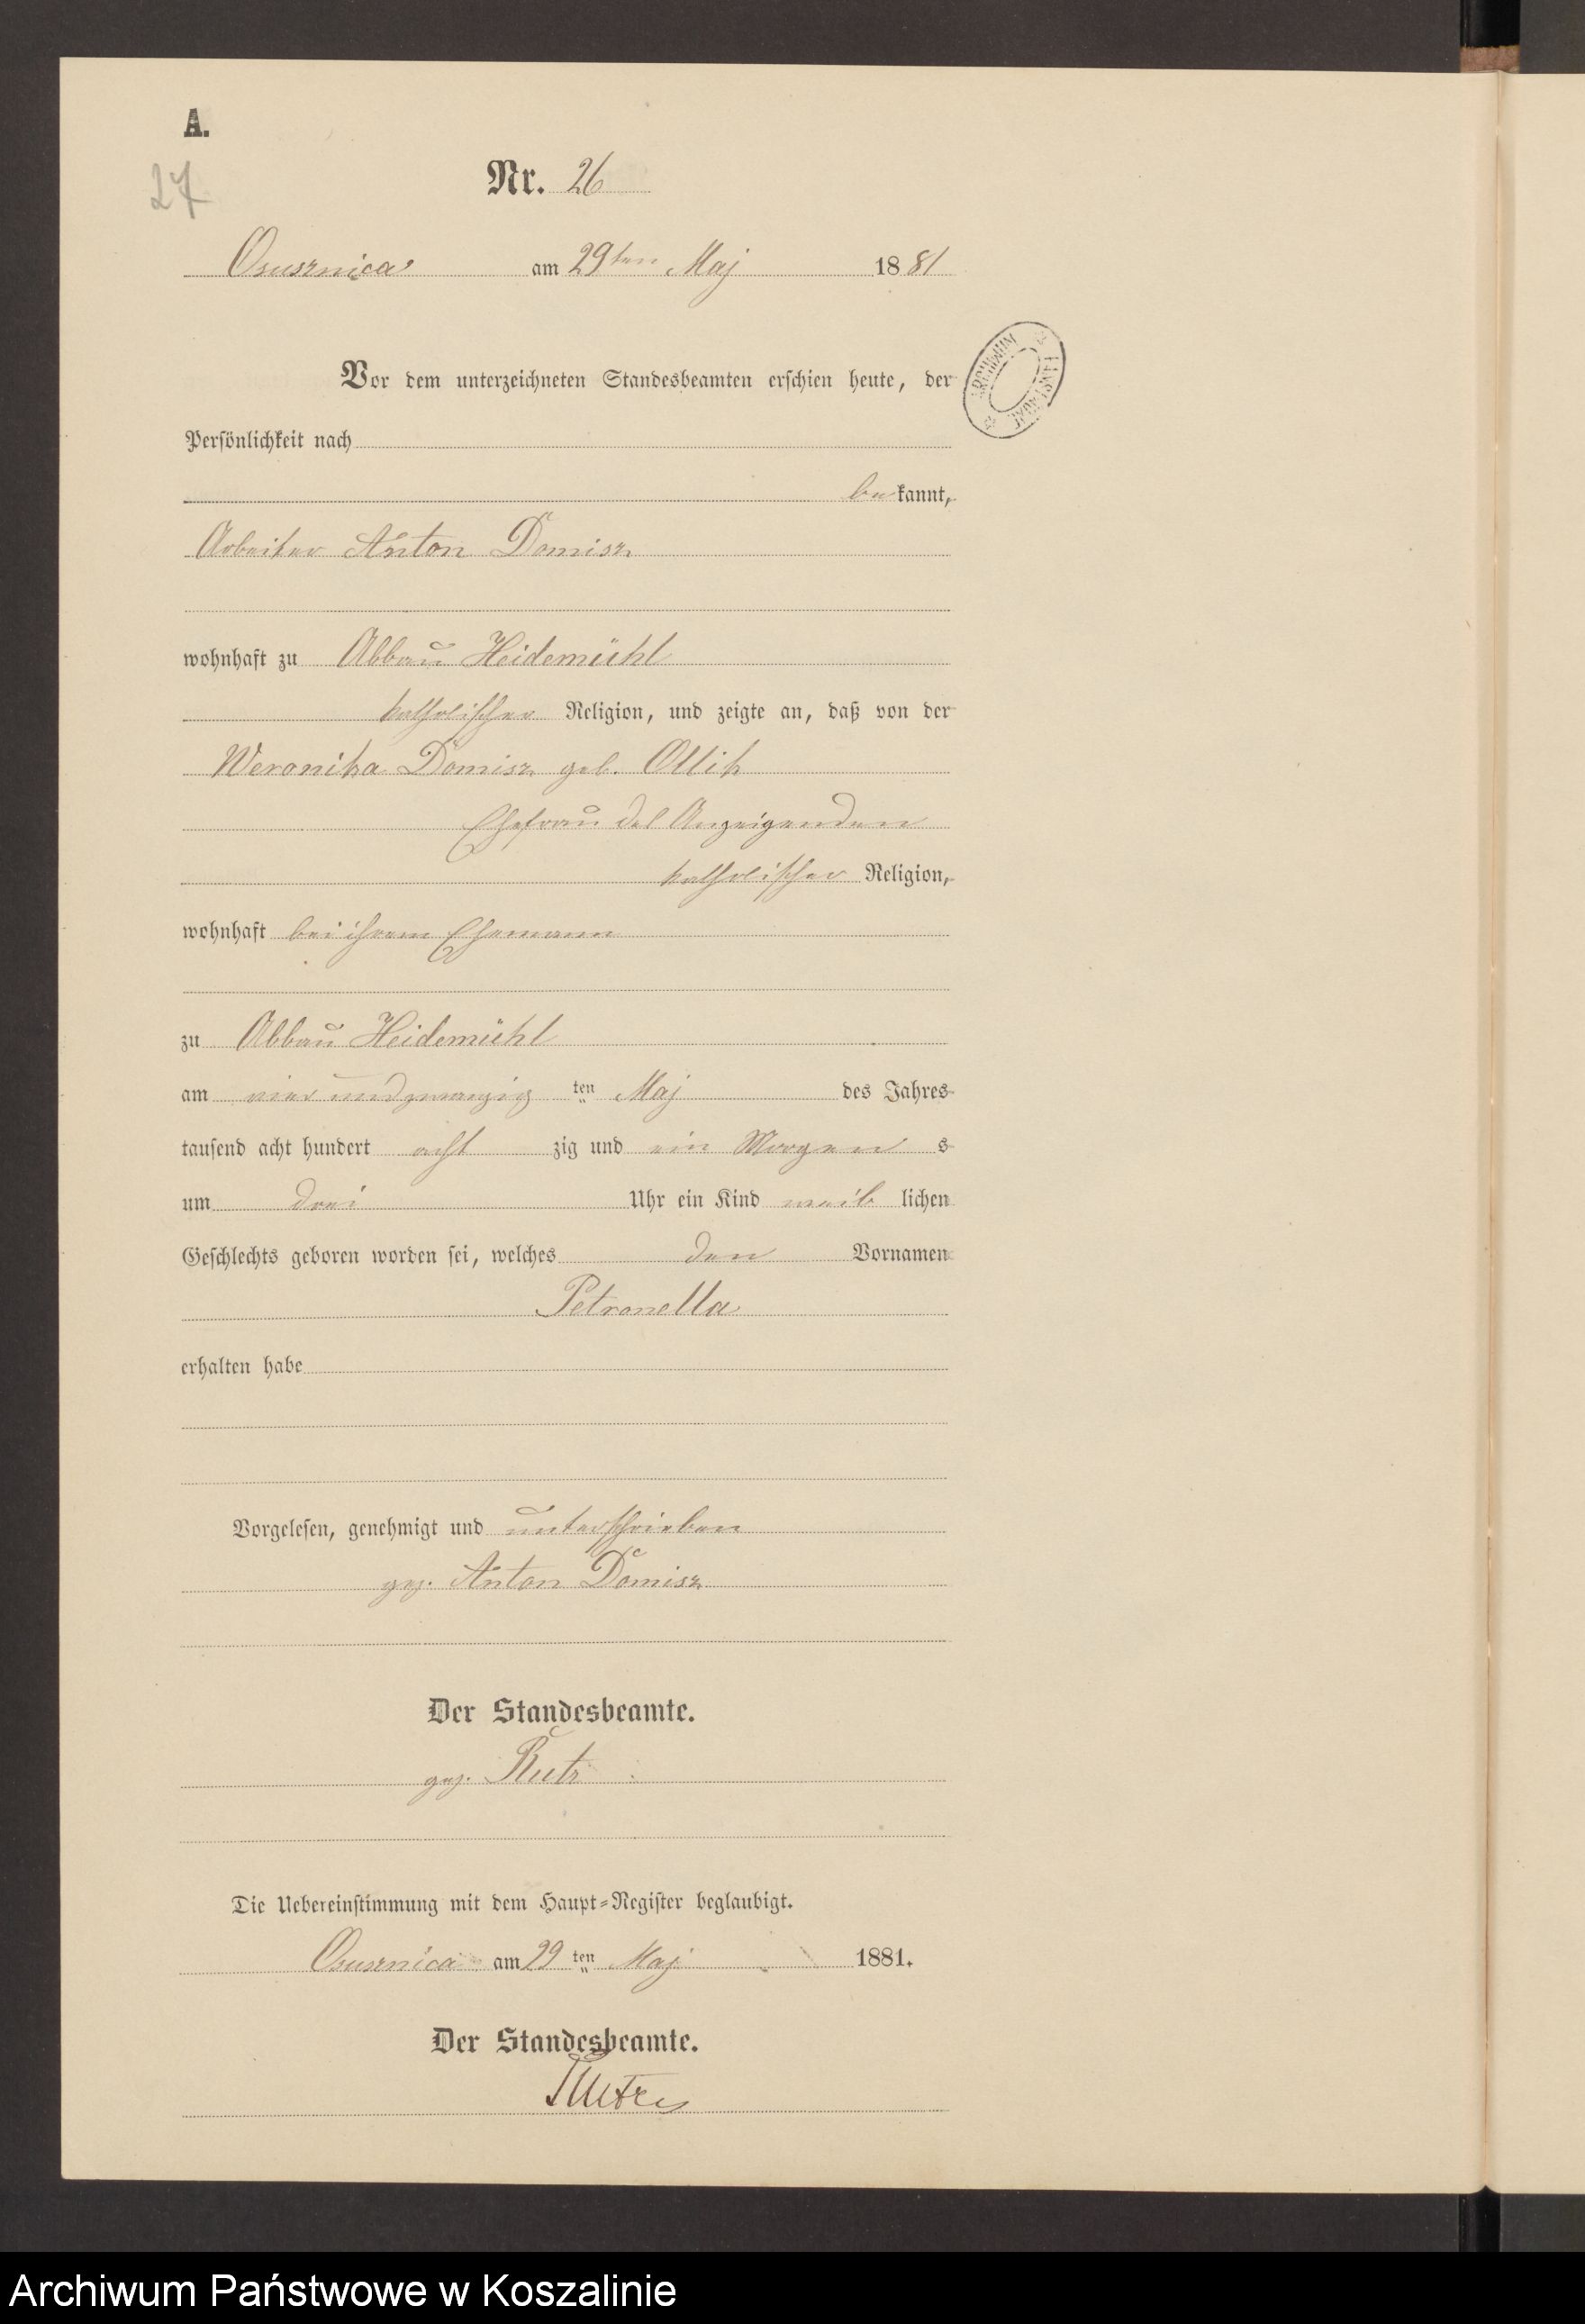 A.
27
Nr. 26
Osusznica am 29ten Maj 1881
Vor dem unterzeichneten Standesbeamten erschien heute, der
Persönlichkeit nach
bekannt,
Arbeiter Anton Domisz
wohnhaft zu Abbau Heidemühl
katholischer Religion, und zeigte an, daß von der
Weronika Domisz geb. Ollik
Ehefrau des Anzeigenden
katholischer Religion,
wohnhaft bei ihrem Ehemann
zu Abbau Heidemühl
am vier und zwanzig ten Maj des Jahres
tausend acht hundert acht zig und ein Morgens
um drei Uhr ein Kind weiblichen
Geschlechts geboren worden sei, welches den Vornamen
Petronella
erhalten habe
Vorgelesen, genehmigt und unterschrieben
gez. Anton Domisz
Der Standesbeamte.
gez. Rutz
Die Uebereinstimmung mit dem Haupt-Register beglaubigt.
Osusznica am 29 ten Maj 1881.
Der Standesbeamte.
Rutz
Archiwum Państwowe w Koszalinie